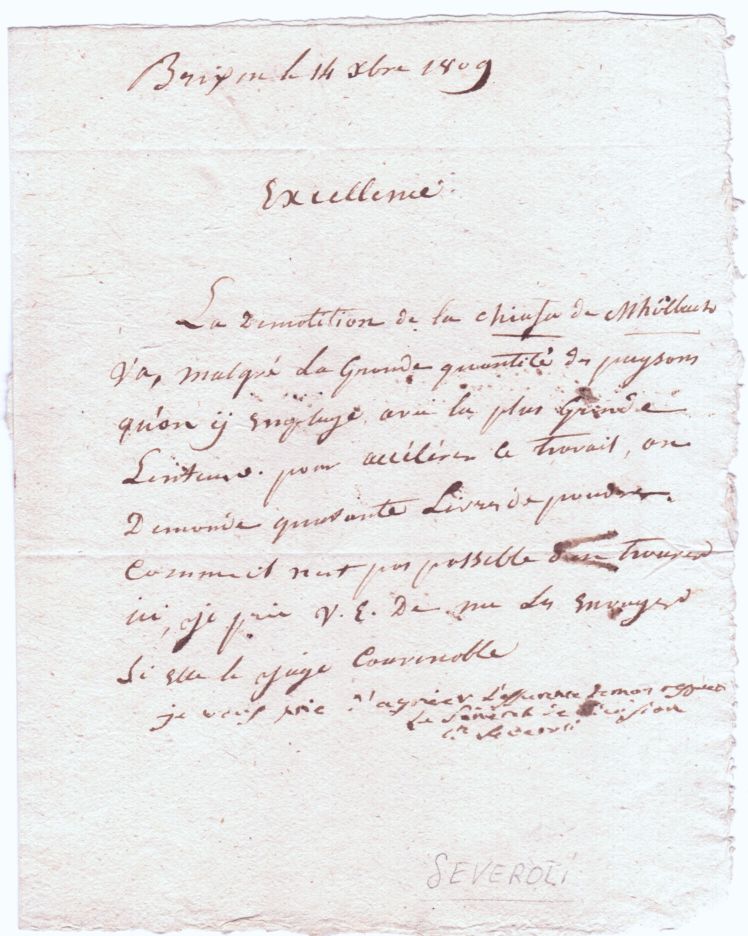 Brixen le 14 Xbre 1809
Excellence
La Demolition de la chiusa de Mhölbach
Va, malgré La Grande quantité des paysans
qu'on ij employe avec la plus Grande
Lenteur. pour accélérer ce travail, on
Demande quarante Livres de poudre.
Comme il n'est pas possible d'en trouver
ici, je prie V. E. De me Les Envoyer
Si elle le juge Convenable
je vous prie d'agréer L'assurance de mon respect
Le Général de Division
Severoli
SEVEROLI